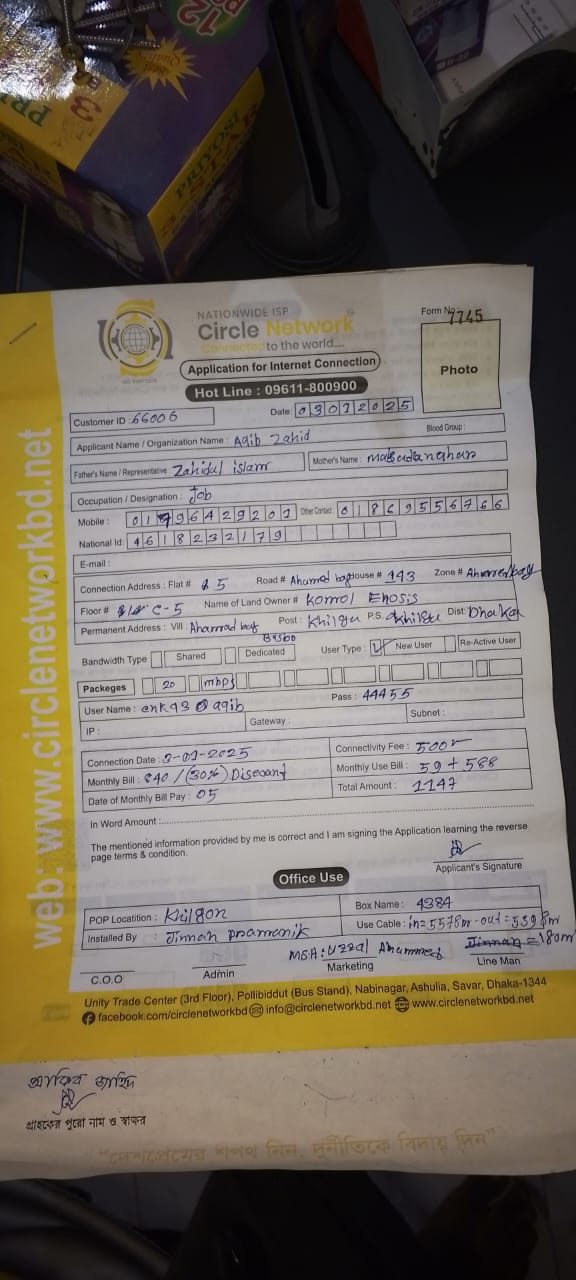 12
PRIYOSI
3 STAR
NATIONWIDE ISP
Circle Network
Connected to the world....
Form No : 7745
Photo
Application for Internet Connection
Hot Line : 09611-800900
Customer ID : 66006
Date: 03012025
Applicant Name / Organization Name : Aqib Zahid
Blood Group :
Father's Name / Representative : Zahidul islam
Mother's Name :
Occupation / Designation : Job
Mobile : 01796429201 Other Contact : 01869556766
National Id: 4618232179
E-mail :
Connection Address : Flat # 5 Road # Ahamed bag House # 143 Zone # Ahmmedbag
Floor # C-5 Name of Land Owner # Komol Enosis
Permanent Address : Vill Ahamad bag Post : Khilgu P.S. Khilgu Dist: Dhaka
Bandwidth Type Shared Dedicated User Type : New User Re-Active User
Packeges 20 mbps
User Name : enk43@aqib Pass : 44455
IP : Gateway : Subnet :
Connection Date : 3-01-2025 Connectivity Fee : 500
Monthly Bill : 840 / (30%) Discoant Monthly Use Bill : 59 + 588
Date of Monthly Bill Pay : 05 Total Amount : 1147
In Word Amount :
The mentioned information provided by me is correct and I am signing the Application learning the reverse
page terms & condition.
Applicant's Signature
Office Use
POP Locatition : Khilgon Box Name : 4384
Installed By : Jinnah pramanik Use Cable : in=5578m-out=5398m
=180m
MSA: Uzzal Ahammed
C.O.O Admin Marketing Line Man
Unity Trade Center (3rd Floor), Pollibiddut (Bus Stand), Nabinagar, Ashulia, Savar, Dhaka-1344
facebook.com/circlenetworkbd info@circlenetworkbd.net www.circlenetworkbd.net
web: www.circlenetworkbd.net
আকিব জাহিদ
গ্রাহকের পুরো নাম ও স্বাক্ষর
"দেশপ্রেমের শপথ নিন, দুর্নীতিকে বিদায় দিন"